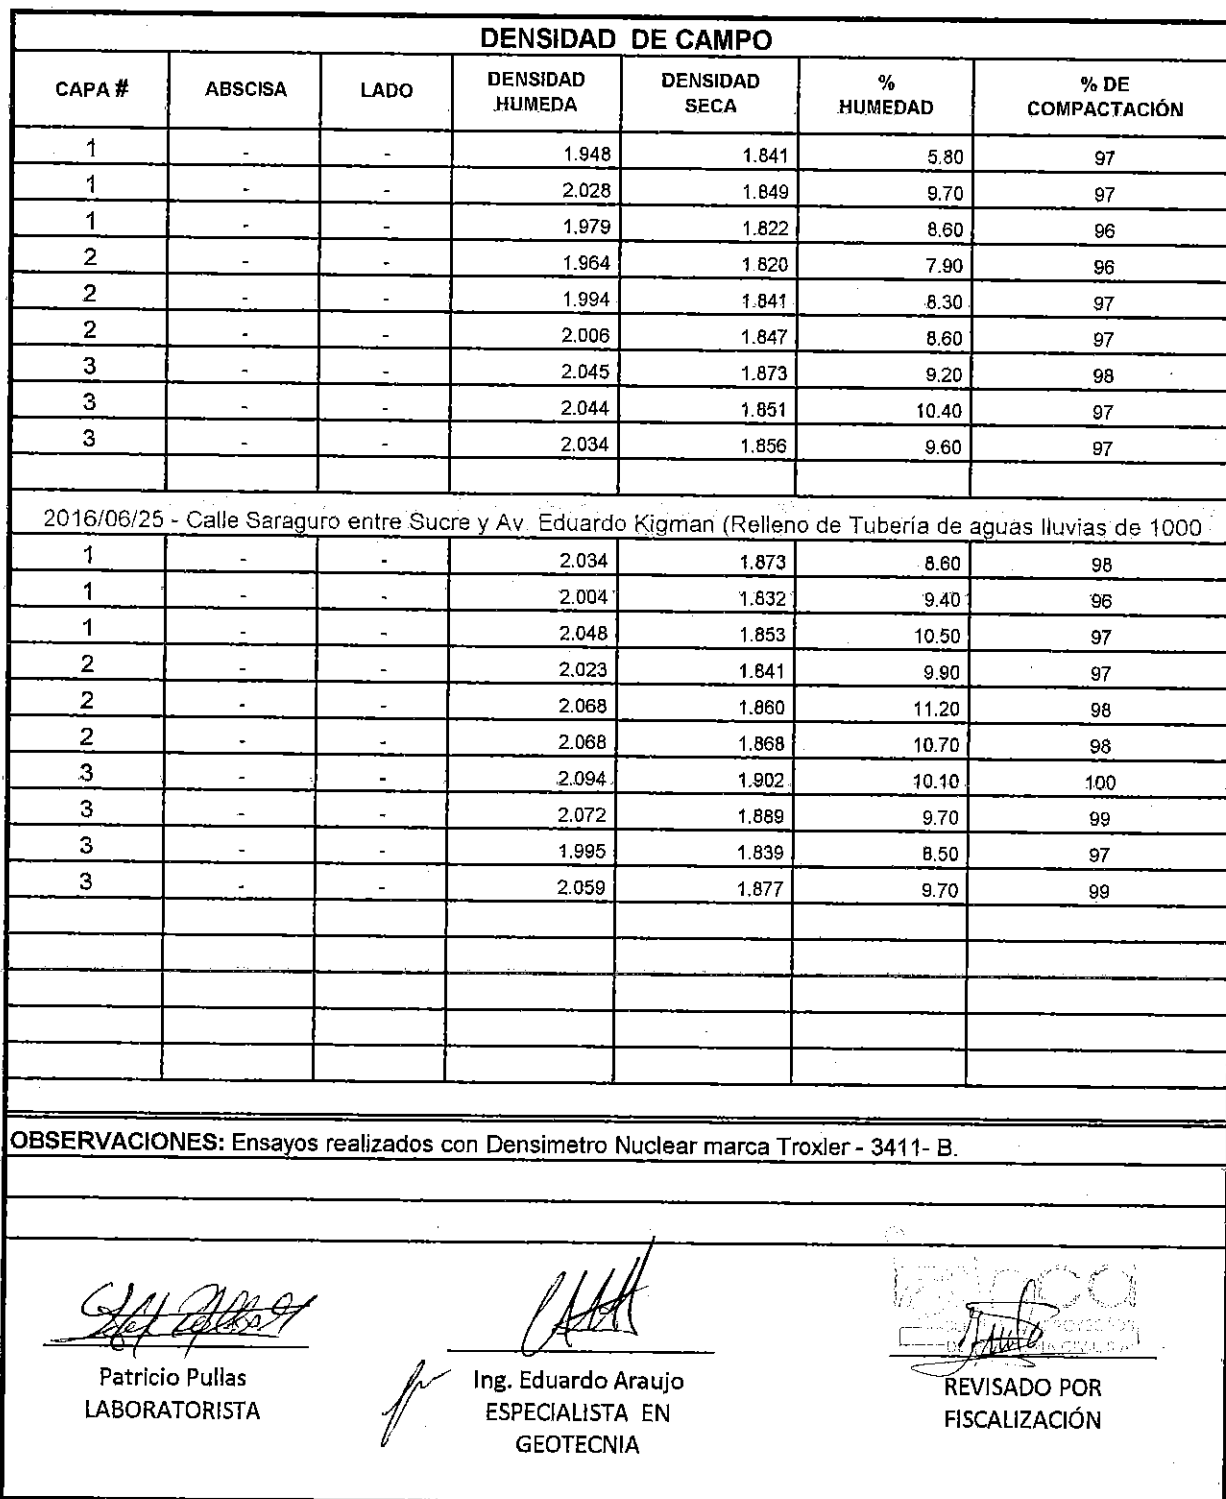 DENSIDAD DE CAMPO
CAPA # ABSCISA LADO DENSIDAD HUMEDA DENSIDAD SECA % HUMEDAD % DE COMPACTACIÓN
1 - - 1.948 1.841 5.80 97
1 - - 2.028 1.849 9.70 97
1 - - 1.979 1.822 8.60 96
2 - - 1.964 1.820 7.90 96
2 - - 1.994 1.841 8.30 97
2 - - 2.006 1.847 8.60 97
3 - - 2.045 1.873 9.20 98
3 - - 2.044 1.851 10.40 97
3 - - 2.034 1.856 9.60 97
2016/06/25 - Calle Saraguro entre Sucre y Av. Eduardo Kigman (Relleno de Tubería de aguas lluvias de 1000
1 - - 2.034 1.873 8.60 98
1 - - 2.004 1.832 9.40 96
1 - - 2.048 1.853 10.50 97
2 - - 2.023 1.841 9.90 97
2 - - 2.068 1.860 11.20 98
2 - - 2.068 1.868 10.70 98
3 - - 2.094 1.902 10.10 100
3 - - 2.072 1.889 9.70 99
3 - - 1.995 1.839 8.50 97
3 - - 2.059 1.877 9.70 99
OBSERVACIONES: Ensayos realizados con Densimetro Nuclear marca Troxler - 3411- B.
Patricio Pullas
LABORATORISTA
Ing. Eduardo Araujo
ESPECIALISTA EN
GEOTECNIA
REVISADO POR
FISCALIZACIÓN